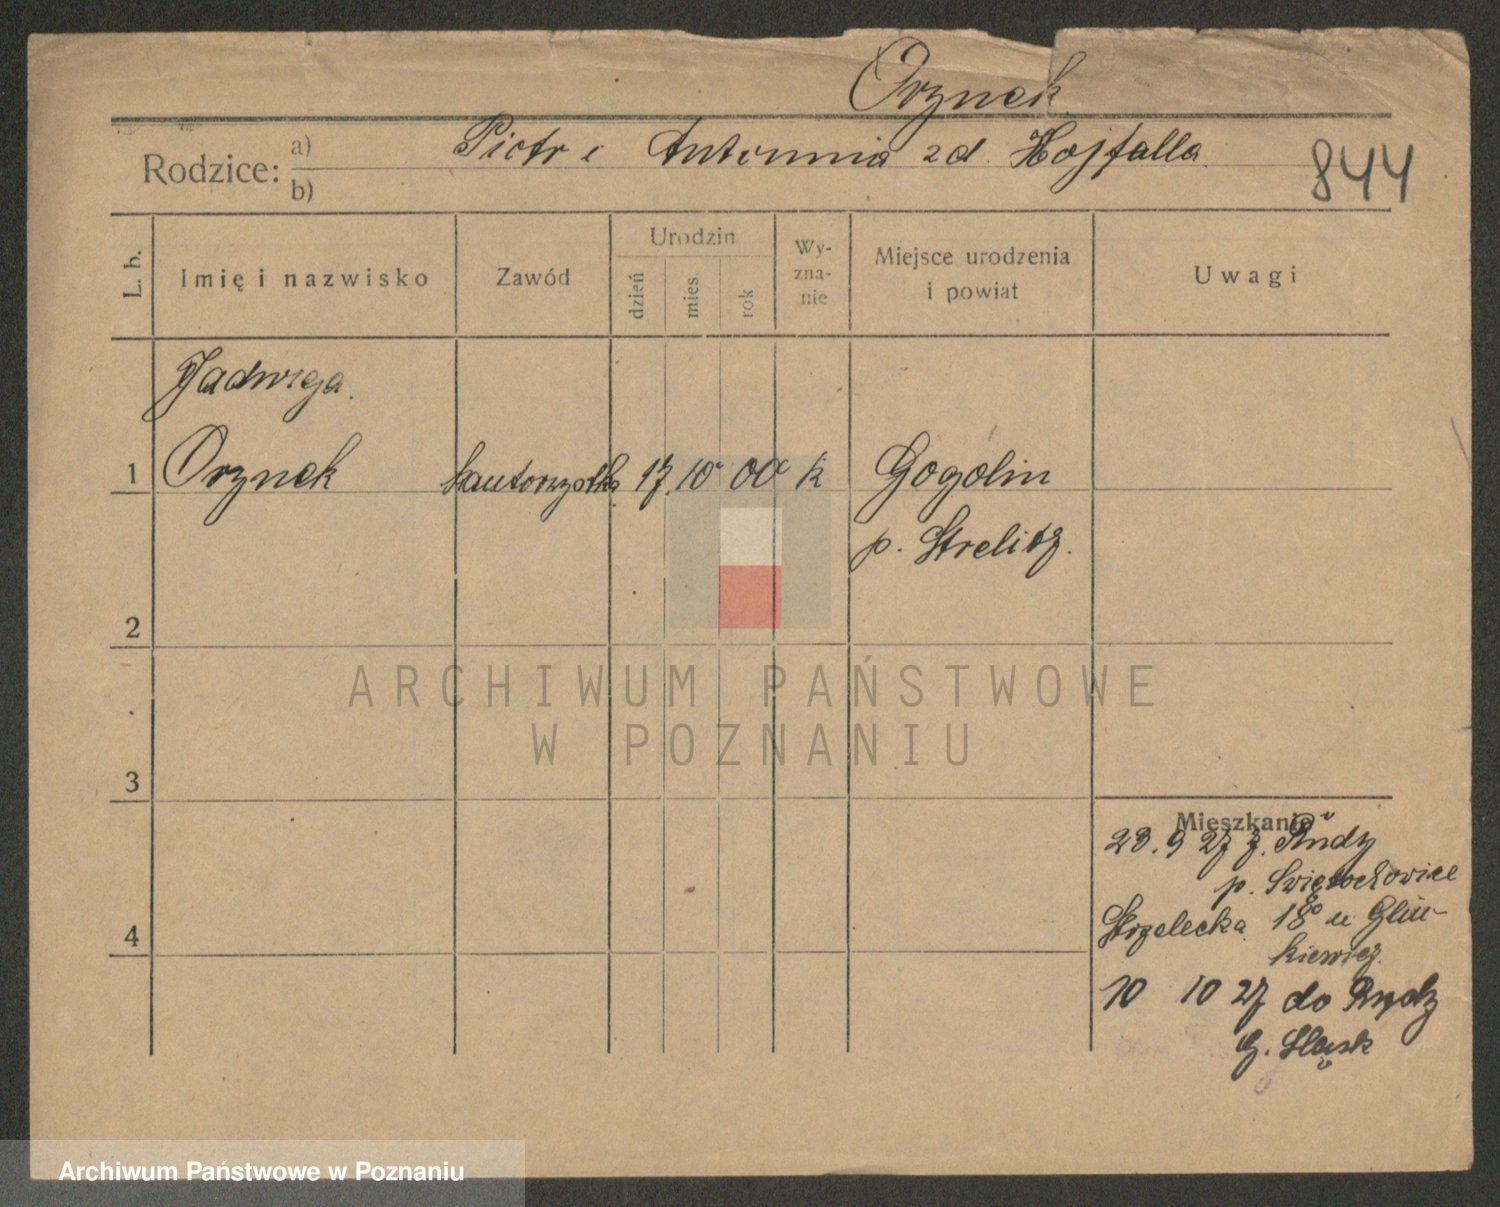 Orznek
Rodzice: a) Piotr i Antonnia zd. Hojfalla
b)
844
L. b.
Imię i nazwisko
Zawód
Urodzin
dzień
mies.
rok
Wy-
zna-
nie
Miejsce urodzenia
i powiat
Uwagi
Jadwiga
1 Orznek 17. 10 00 k Gogolin
p. Strelitz.
2
3
4
Mieszkanie
23. 9 27 z. Rudy
p. Świętochowice
Strzelecka 18 u Glin-
kiewicz.
10 10 27 do Rudy
G. Śląsk
ARCHIWUM PAŃSTWOWE
W POZNANIU
Archiwum Państwowe w Poznaniu